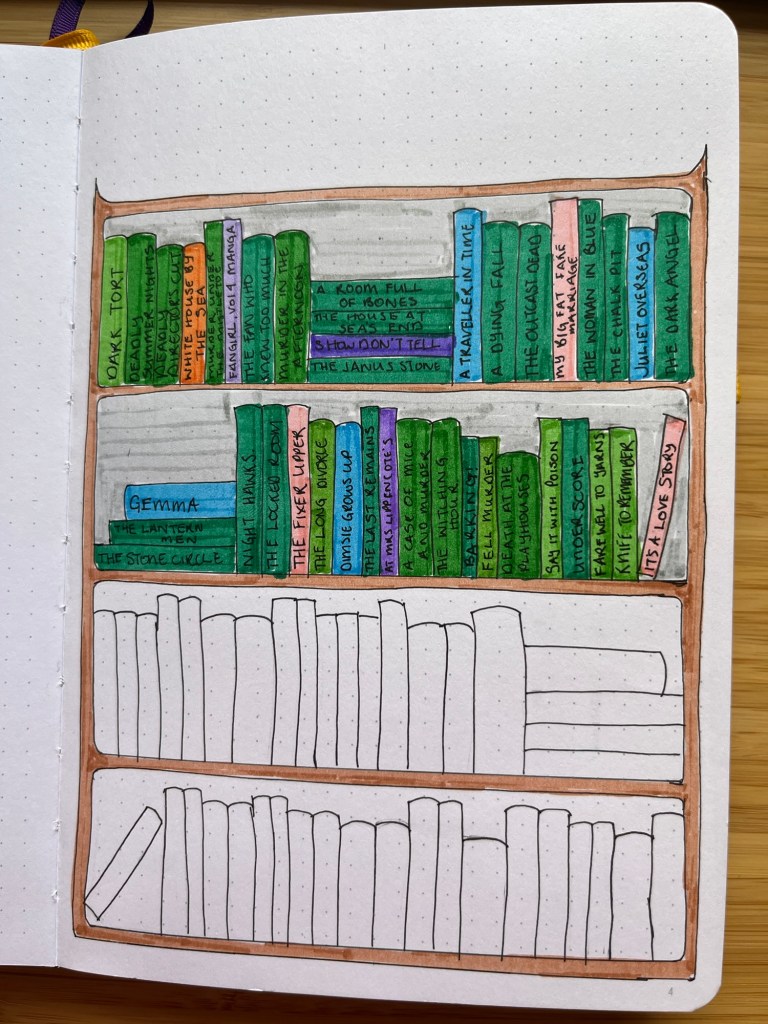 DARK TORT
DEADLY
SUMMER NIGHTS
DEADLY
DIRECTOR'S CUT
WHITE HOUSE BY
THE SEA
MURDER UNDER
THE MISTLETOE
FANGIRL VOL 4 MANGA
THE FAN WHO
KNEW TOO MUCH
MURDER IN THE
A ROOM FULL
OF BONES
THE HOUSE AT
SEA'S END
SHOW DON'T TELL
THE JANUS STONE
A TRAVELLER IN TIME
A DYING FALL
THE OUTCAST DEAD
MY BIG FAT FAKE
MARRIAGE
THE WOMAN IN BLUE
THE CHALK PIT
JULIET OVERSEAS
THE DARK ANGEL
GEMMA
THE LANTERN
MEN
THE STONE CIRCLE
NIGHT HAWKS
THE LOCKED ROOM
THE FIXER UPPER
THE LONG DIVORCE
DIMSIE GROWS UP
THE LAST REMAINS
AT MRS LIPPINCOTE'S
A CASE OF MICE
AND MURDER
THE WITCHING
HOUR
BARKING!
FELL MURDER
DEATH AT THE
PLAYHOUSES
SAY IT WITH POISON
UNDERSCORE
FAREWELL TO YARNS
KNIFE TO REMEMBER
ITS A LOVE STORY
4